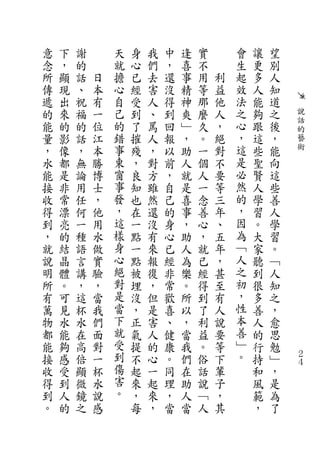 說話的藝術
望別人知道之後，能向這些善人學習。「人知之，愈思勉」，是為了
讓更多人能夠跟這些聖賢人學習。大家聽到很多善人的行持和風範，
會生起效法之心，這是必然的，因為「人之初，性本善」。
利益他人，絕對不要等三年、五年，甚至有人說要等下輩子，其
實不用等那麼久。一個人一念善心，就已經得到了利益。俗話說「人
逢喜事精神爽」，助人就是喜事，助人為樂。所以，當我們在助人當
中，還沒得到回報以前，自己的身心已經非常歡喜、健康。同理，當
我們去害人、罵人，對方雖然還沒有來報復，但是害人的心一起來，
身心已經受到了摧殘，良知也在一點一點被埋沒，正氣提不起來，每
天就擔心自己的錯事東窗事發，這樣身心絕對是當下就受到傷害。
日本有一位江本勝博士，他用水做實驗，當我們面對一杯水說感
謝的話、祝福的話，無論用任何一種語言講，這杯水在高倍顯微鏡之
下，顯現出來的影像都是非常漂亮的結晶體。可見水能夠感受到人的
意念所傳遞的能量，水能接收得到，就說明所有萬物都能接收得到。
24